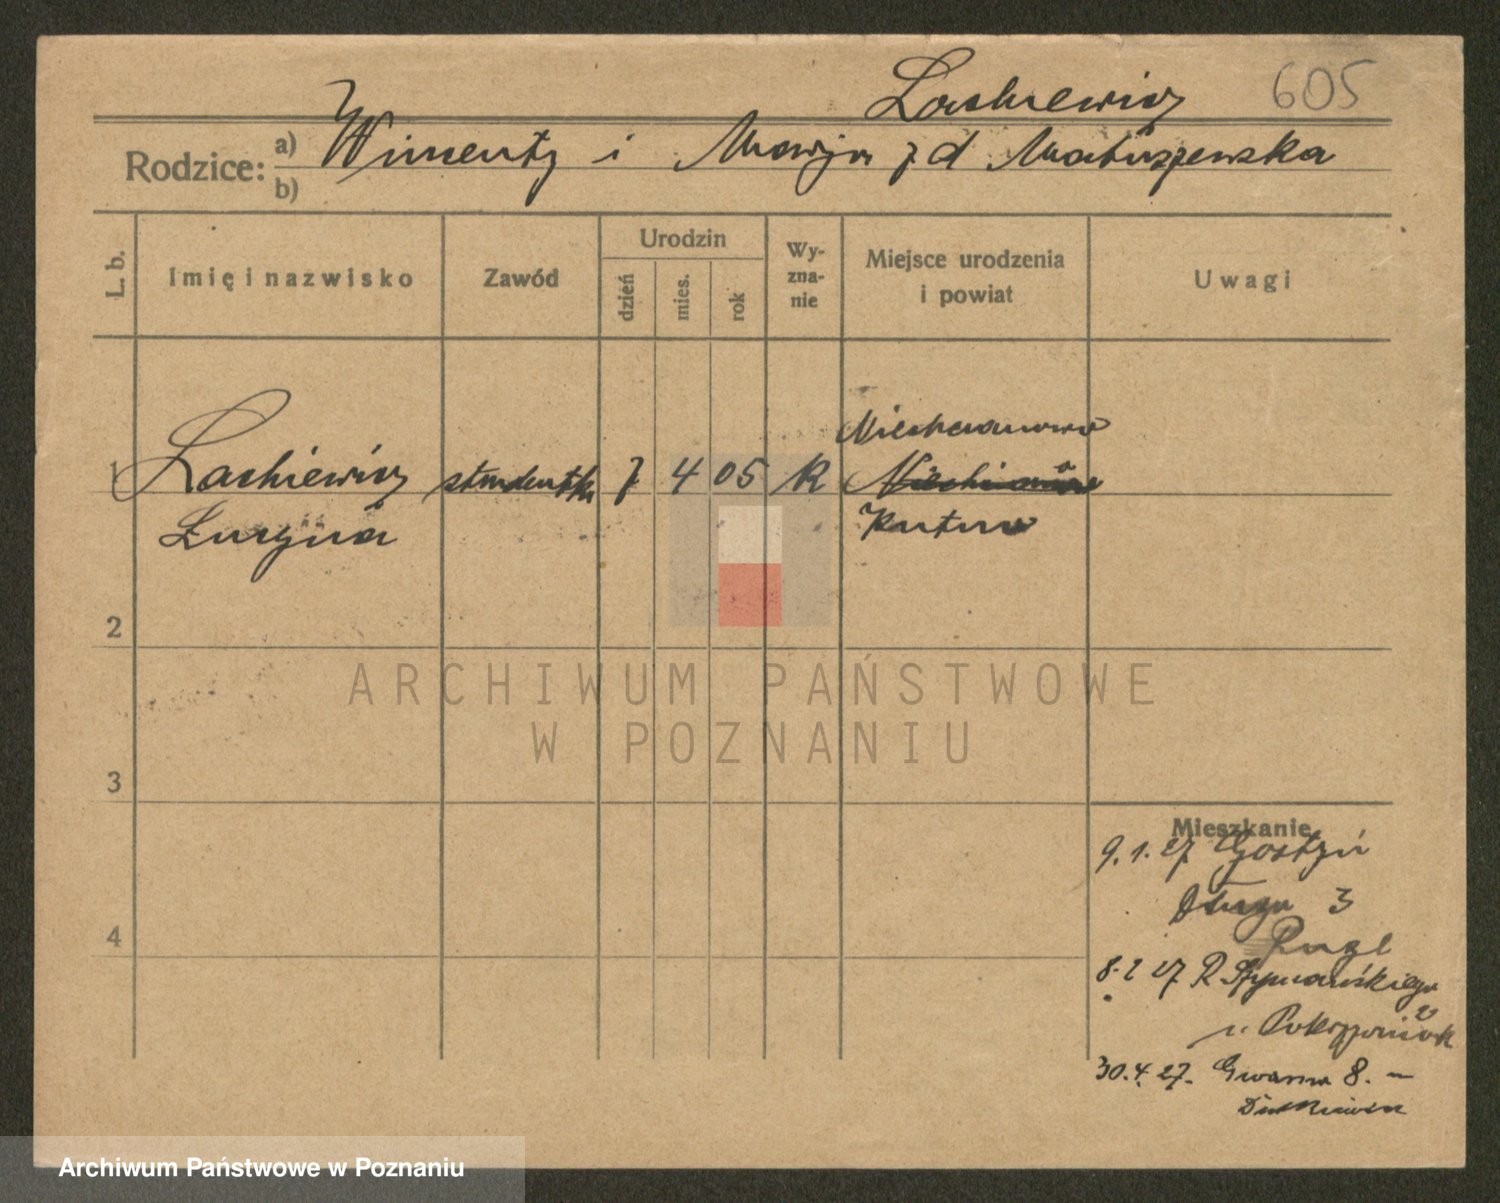 Lachiewicz 605
Rodzice: a) Wincenty i Marja z d Matuszewska
b)
L. b. Imię i nazwisko Zawód Urodzin dzień mies. rok Wy-zna-nie Miejsce urodzenia i powiat Uwagi
Niechanowo
1 Lachiewicz studentka 7 4 05 R
Kutno
2
ARCHIWUM PAŃSTWOWE
W POZNANIU
3
Mieszkanie
9.1.27 Gostyń
Długa 3
4
8.2 27 R. Szymańskiego 2
u.
30.4.27. Gwarna 8. —
Archiwum Państwowe w Poznaniu